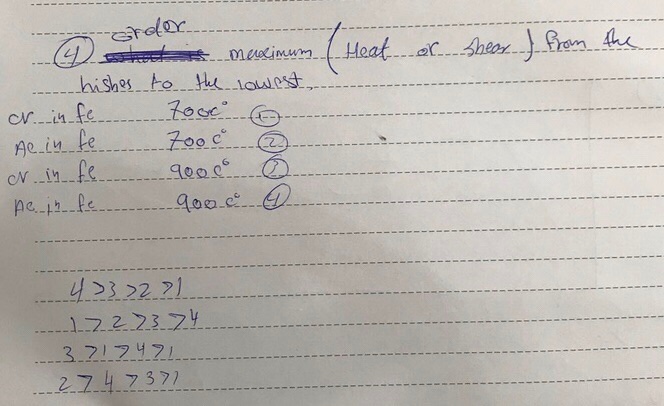 order
④ maximum (Heat or shear) from the
hishes to the lowest.
cr in fe 700c° ①
Ae in fe 700c° ②
cr in fe 900c° ③
Ae in fe 900c° ④
4>3>2>1
1>2>3>4
3>1>4>1
2>4>3>1